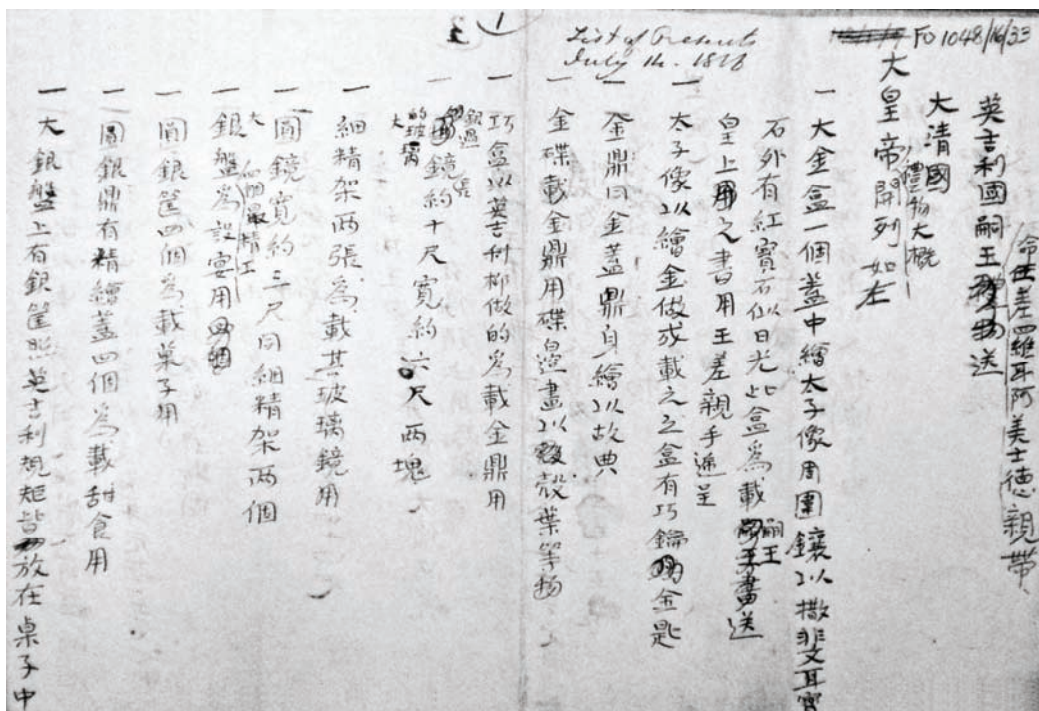 1
List of Presents
July 14. 1816
FO 1048/16/33
命差四維耳阿美士德親帶
英吉利國嗣王送
大清國
禮物大概
大皇帝開列如左
一 大金盒一個蓋中繪太子像周圍鑲以撒非文耳寶
石外有紅寶石似日光此盒為載嗣王送
皇上用之書用王差親手遞呈
一 太子像以繪金做成載之之盒有巧鑰金匙
一 金鼎同金蓋鼎身繪以故典
一 金碟載金鼎用碟邊畫以殼葉等物
一 巧盒以英吉利柳做的為載金鼎用
一 大的玻璃鏡約十尺寬約六尺兩塊
一 細精架兩張為載其玻璃鏡用
一 大圓鏡寬約三尺同細精架兩個
一 銀盤為設宴用
一 圓銀筐四個為載菓子用
一 圓銀鼎有精繪蓋四個為載甜食用
一 大銀盤上有銀筐照英吉利規矩皆放在桌子中